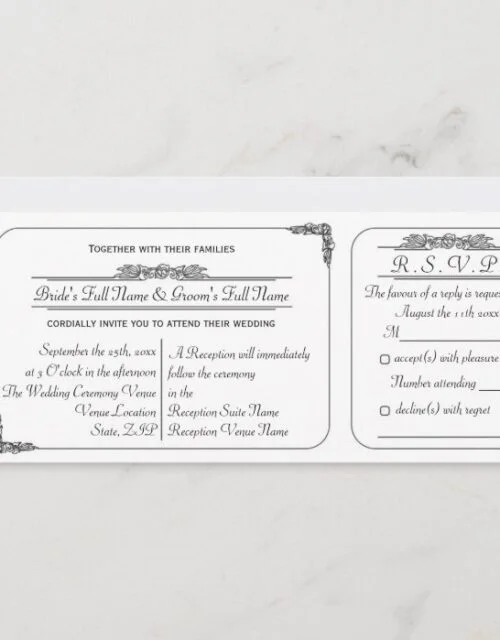 Together with their families
Bride's Full Name & Groom's Full Name
cordially invite you to attend their wedding
September the 25th, 20xx
at 3 O'clock in the afternoon
The Wedding Ceremony Venue
Venue Location
State, ZIP
A Reception will immediately
follow the ceremony
in the
Reception Suite Name
Reception Venue Name
R.S.V.P
The favour of a reply is reques
August the 11th 20xx
M
accept(s) with pleasure
Number attending
decline(s) with regret